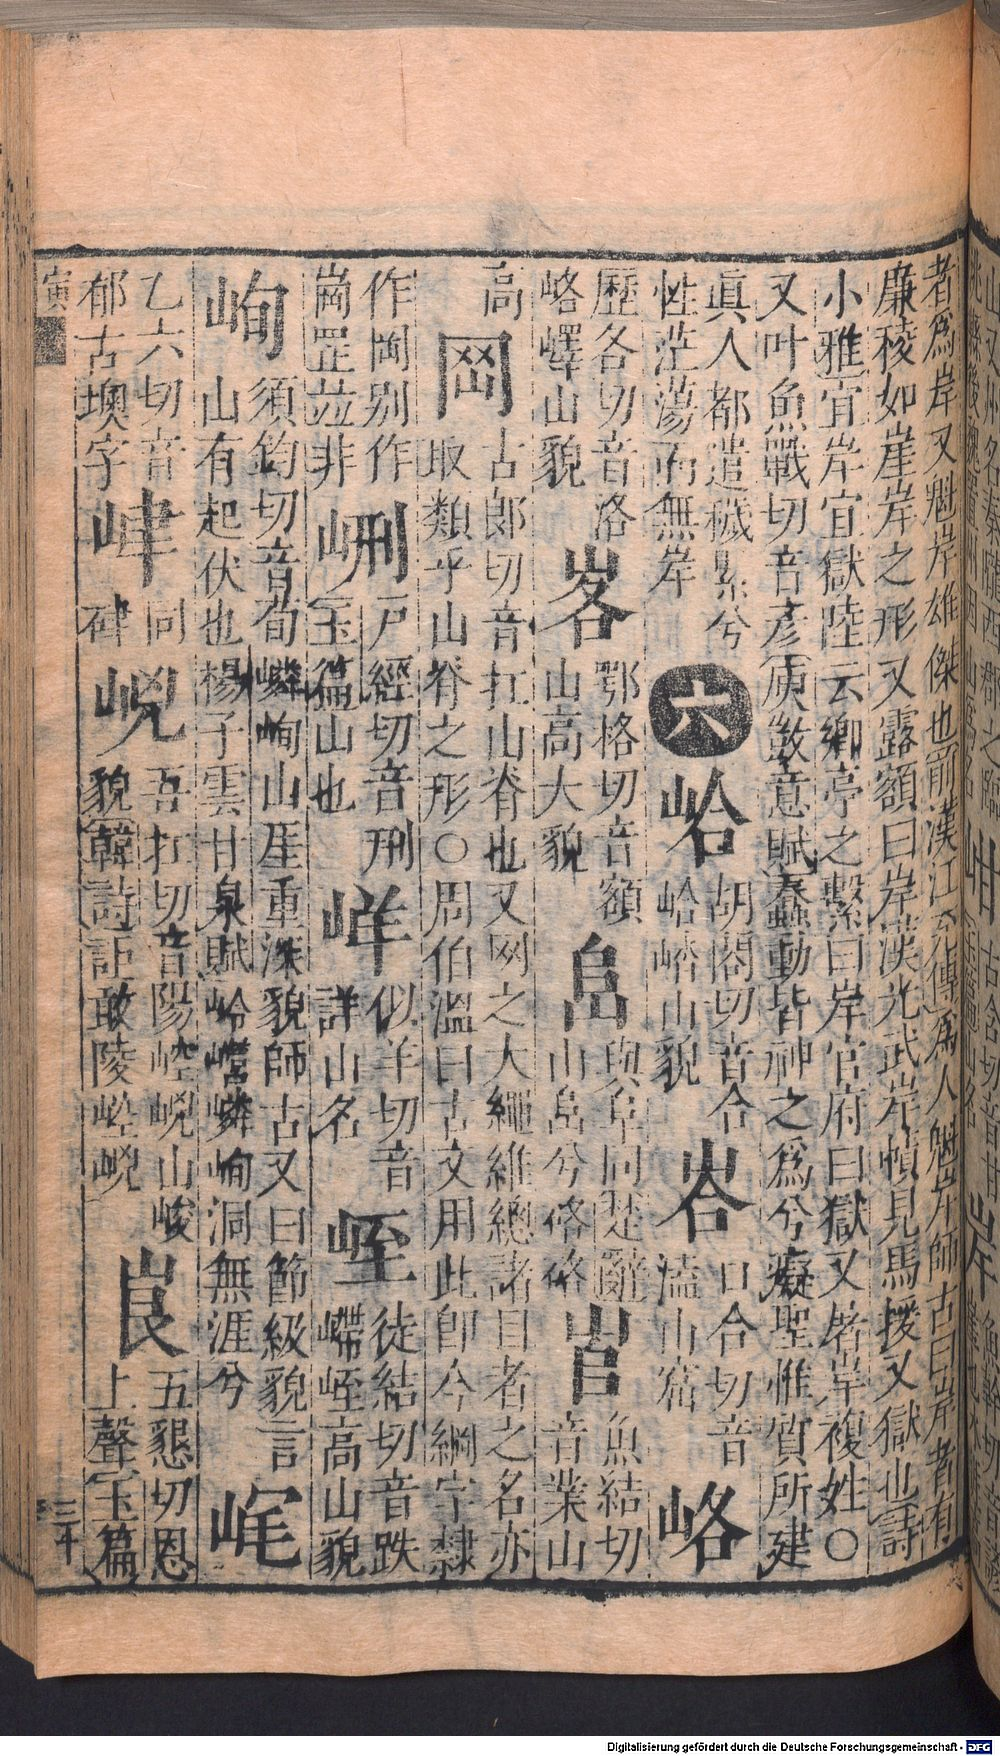 者為岸又魁岸雄傑也前漢江充傳為人魁岸師古曰岸者有
廉稜如崖岸之形又露額曰岸漢光武岸幘見馬援又獄也詩
小雅宜岸宜獄陸云鄉亭之繫曰岸官府曰獄又屠岸複姓〇
又叶魚戰切音彥庾敳意賦蠢動皆神之為兮癡聖惟質所建
眞人都遣穢累兮
性茫蕩而無岸
六
峆
胡閤切音合
峆㟷山貌
峇
口合切音
溘山窟
峈
歷各切音洛
峈嶧山貌
峉
鄂格切音額
山高大貌
峊
與阜同楚辭
山峊兮峉峉
魚結切
音業山
高
岡
古郎切音扛山脊也又网之大繩維總諸目者之名亦
取類乎山脊之形〇周伯溫曰古文用此卽今綱字隸
作岡别作
崗罡竝非
戸經切音刑
玉篇山也
㟄
似羊切音
詳山名
峌
徒結切音跌
嵽峌高山貌
峋
須鈞切音荀嶙峋山厓重深貌師古又曰節級貌言
山有起伏也楊子雲甘泉賦岭巆嶙峋洞無涯兮
乙六切音
郁古墺字
峍
同
硉
㟅
吾扛切音陽崆㟅山峻
貌韓詩詎敢陵崆㟅
峎
五懇切恩
上聲玉篇
寅
三十
Digitalisierung gefördert durch die Deutsche Forschungsgemeinschaft - DFG